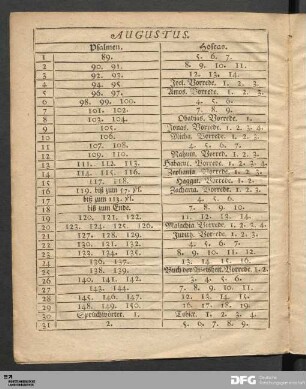 AUGUSTUS.
Psalmen. Hoseas.
1 89. 5. 6. 7.
2 90. 91. 8. 9. 10. 11.
3 92. 93. 12. 13. 14.
4 94. 95 Joel. Vorrede. 1. 2. 3.
5 96. 97. Amos. Vorrede. 1. 2. 3.
6 98. 99. 100. 4. 5. 6.
7 101. 102. 7. 8. 9.
8 103. 104. Obadias. Vorrede. 1.
9 105. Jonas. Vorrede. 1. 2. 3. 4.
10 106. Micha. Vorrede. 1. 2. 3.
11 107. 108. 4. 5. 6. 7.
12 109. 110. Nahum. Vorred. 1. 2. 3.
13 111. 112. 113. Habacuc. Vorrede. 1. 2. 3.
14 114. 115. 116. Zephania. Vorrede. 1. 2. 3.
15 117. 118. Haggai. Vorrede. 1. 2.
16 119. bis zum 57. Zacharia. Vorrede. 1. 2. 3.
17 bis zum 113. 4. 5. 6.
18 bis zum Ende. 7. 8. 9. 10.
19 120. 121. 122. 11. 12. 13. 14.
20 123. 124. 125. 126. Malachia. Vorrede. 1. 2. 3. 4
21 127. 128. 129. Judith. Vorrede. 1. 2. 3.
22 130. 131. 132. 4. 5. 6. 7.
23 133. 134. 135. 8. 9. 10. 11. 12.
24 136. 137. 13. 14. 15. 16.
25 138. 139. Buch der Weisheit. Vorrede. 1. 2.
26 140. 141. 142. 3. 4. 5. 6.
27 143. 144. 7. 8. 9. 10. 11.
28 145. 146. 147. 12. 13. 14. 15.
29 148. 149. 150. 16. 17. 18. 19.
30 Sprüchwörter. 1. Tobiä. 1. 2. 3. 4.
31 2. 5. 6. 7. 8. 9.
DFG